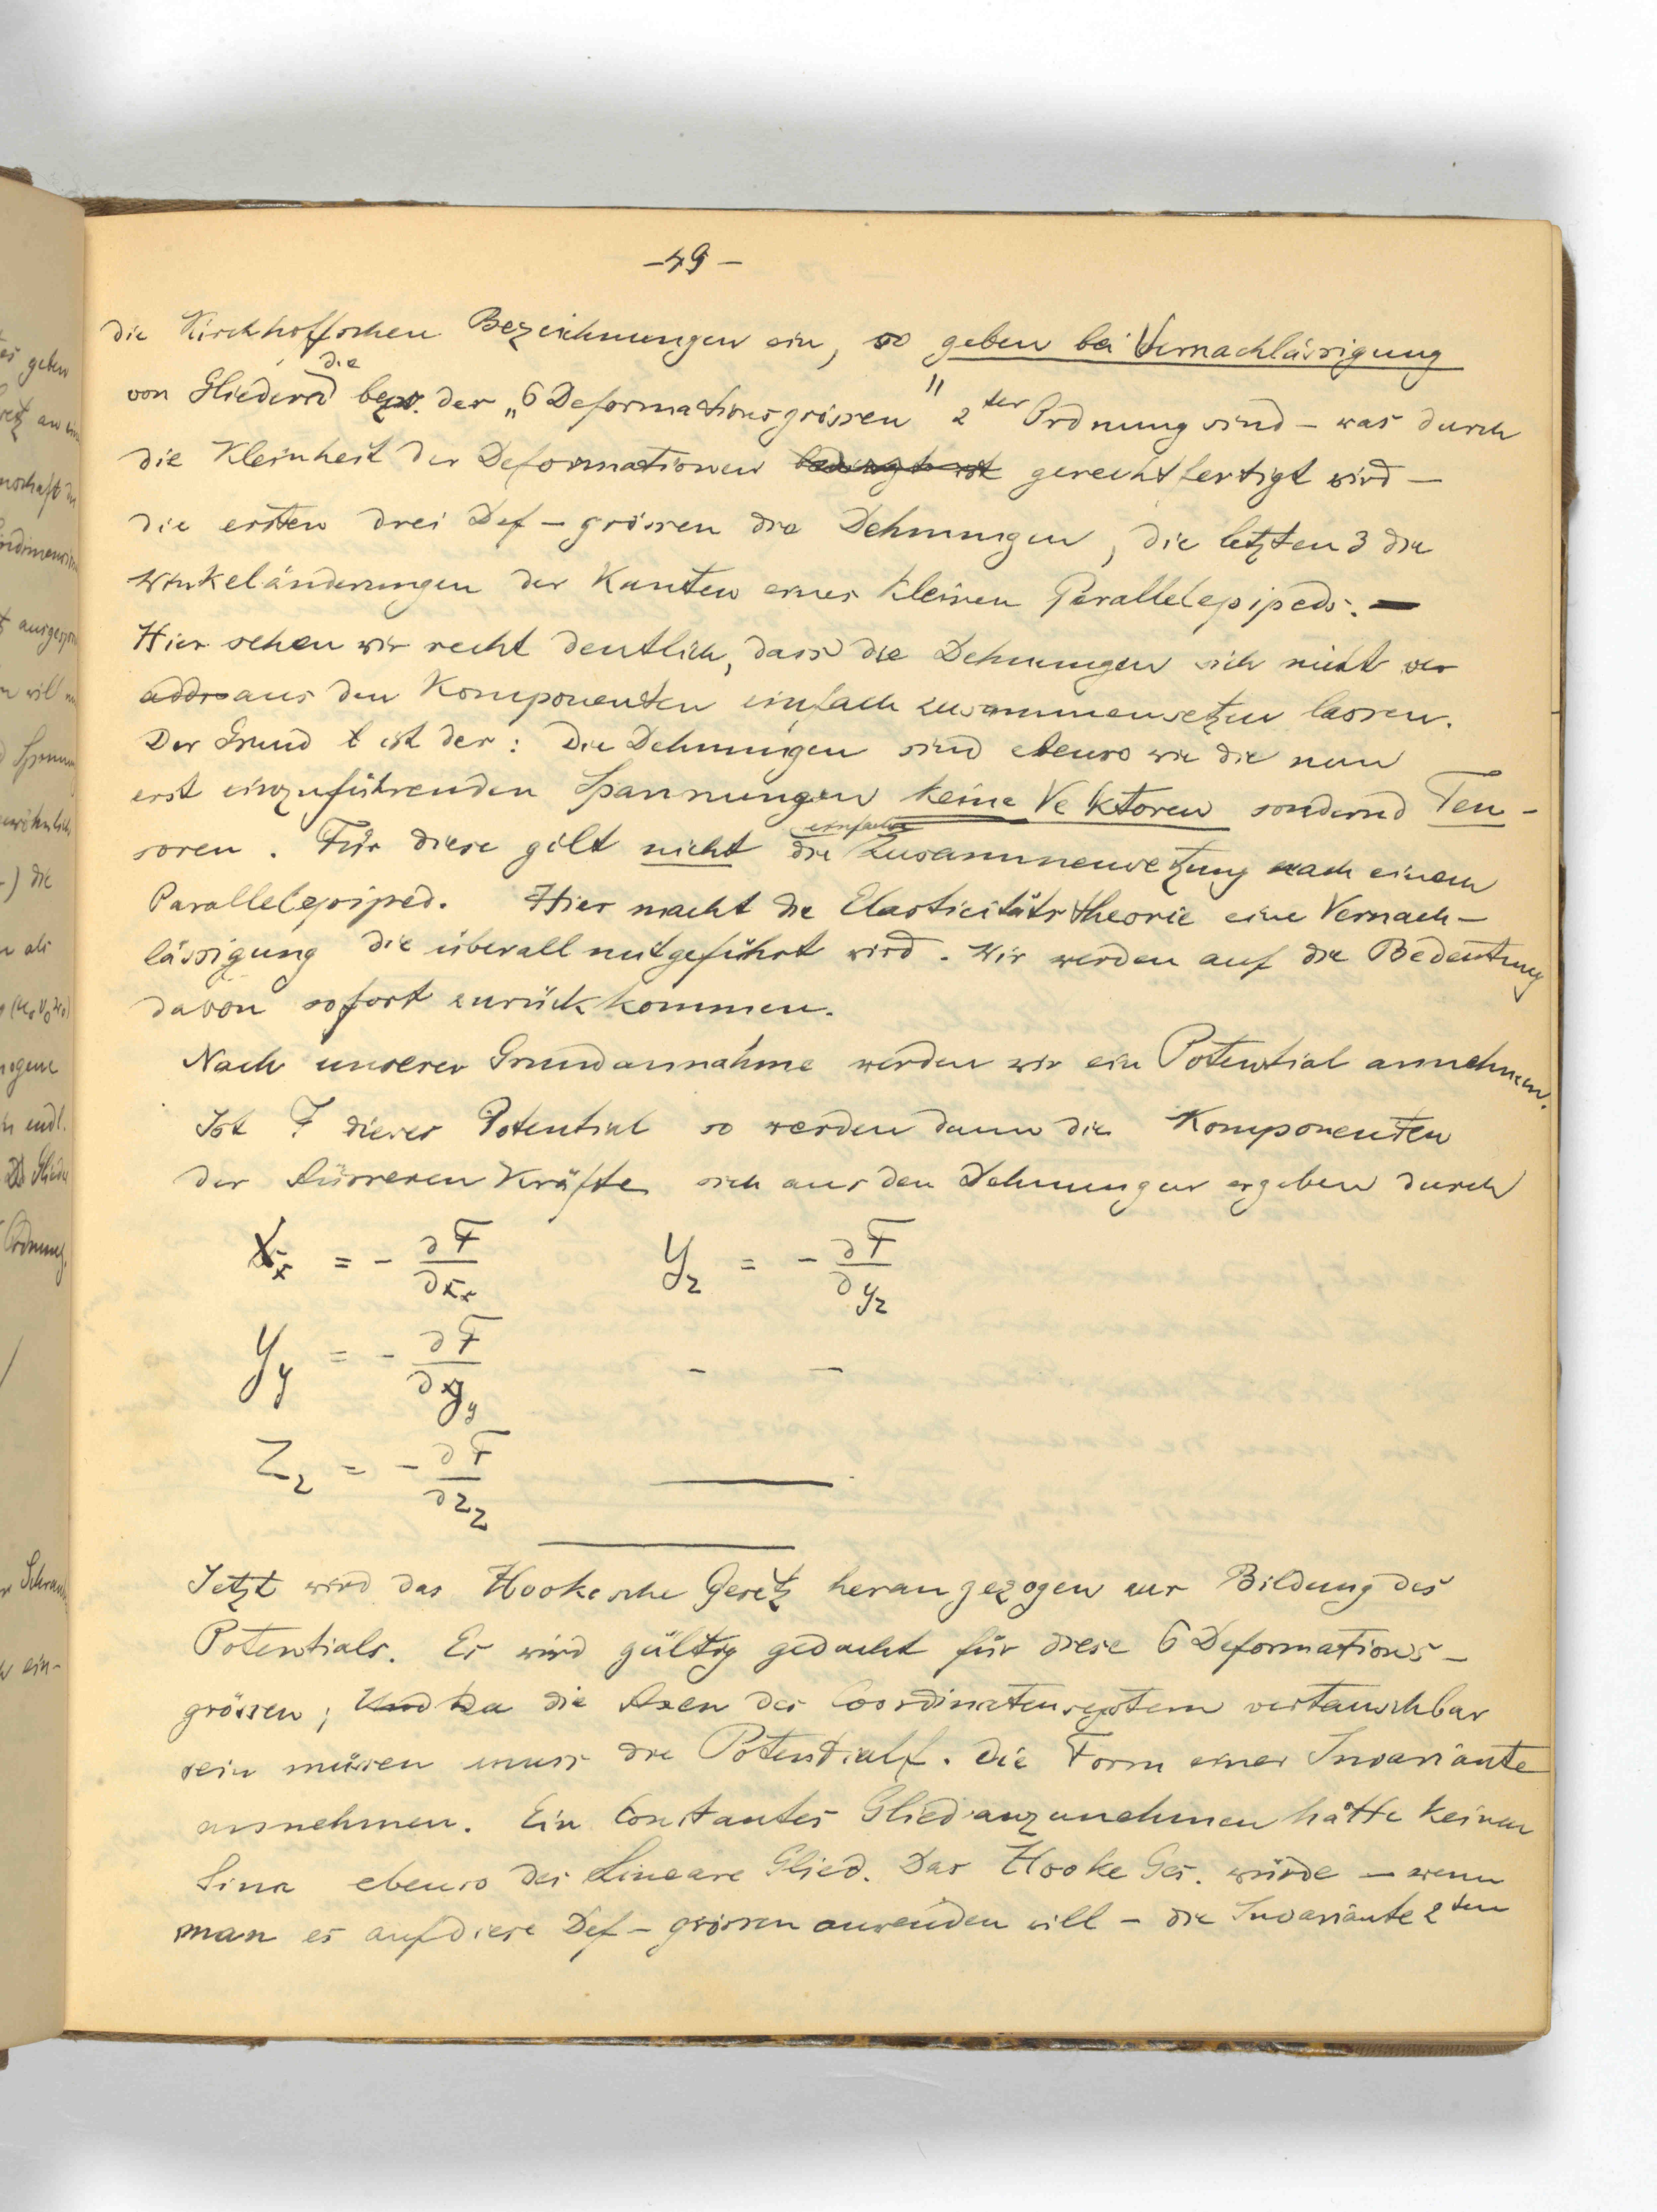 –49–
die Kirchhoffschen Bezeichnungen ein, so geben bei Vernachlässigung
von Gliedern die bez. der „6 Deformationsgrössen" 2ter Ordnung sind – was durch
die Kleinheit der Deformationen bedingt ist gerechtfertigt wird –
die ersten drei Def–grössen die Dehnungen, die letzten 3 die
Winkeländerungen der Kanten eines kleinen Parallelepipeds. –
Hier sehen wir recht deutlich, dass die Dehnungen sich nicht
aus den Komponenten einfach zusammensetzen lassen.
Der Grund ist der: Die Dehnungen sind ebenso wie die nun
erst einzuführenden Spannungen keine Vektoren sondern Ten-
soren. Für diese gilt nicht die einfache Zusammensetzung nach einem
Parallelepiped. Hier macht die Elasticitätstheorie eine Vernach-
lässigung die überall mitgeführt wird. Wir werden auf die Bedeutung
davon sofort zurückkommen.
Nach unserer Grundannahme werden wir ein Potential annehmen.
Ist F dieses Potential so werden dann die Komponenten
der äusseren Kräfte sich aus den Dehnungen ergeben durch
X_x = - ∂F/∂x_x   Y_z = - ∂F/∂y_z
Y_y = - ∂F/∂y_y   – –
Z_z = - ∂F/∂z_z   –
Jetzt wird das Hookesche Gesetz herangezogen zur Bildung des
Potentials. Es wird gültig gedacht für diese 6 Deformations-
grössen; Und da die Axen des Coordinatensystem vertauschbar
sein müssen muss die Potentialf. die Form einer Invariante
annehmen. Ein Constantes Glied anzunehmen hätte keinen
Sinn ebenso das Lineare Glied. Das Hooke Ges. würde – wenn
man es auf diese Def–grössen anwenden will – die Invariante 2ten